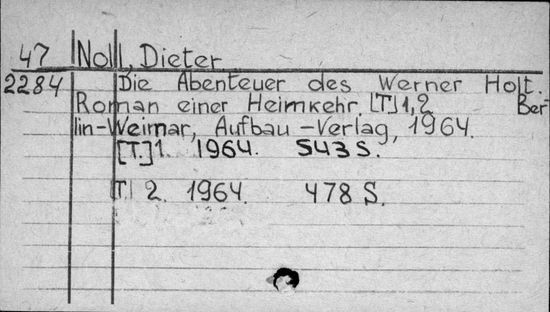 47 Noll, Dieter
2284 Die Abenteuer des Werner Holt.
Roman einer Heimkehr. [T.] 1,2 Ber-
lin-Weimar, Aufbau-Verlag, 1964.
[T.] 1. 1964. 543 S.
[T.] 2. 1964. 478 S.